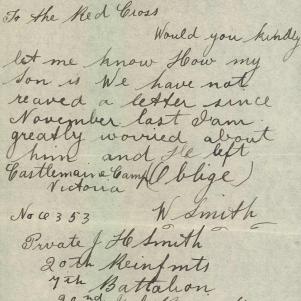 To the Red Cross
Would you kindly
let me know How my
Son is We have not
reaved a letter since
November last I am
greatly worried about
him and He left
Castlemain Camp (Oblige)
Victoria
No 6353 W Smith
Private J H Smith
20th Reinfmts
7th Battalion